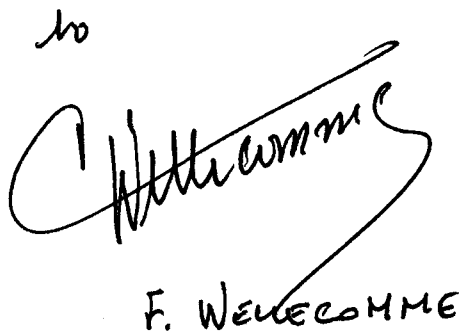 Willecomme
F. WELLECOMME